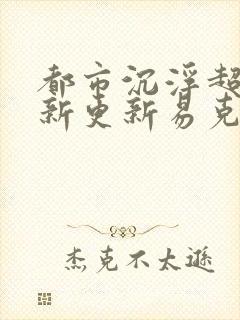 都市沉浮超
新更新易克
杰克不太逊